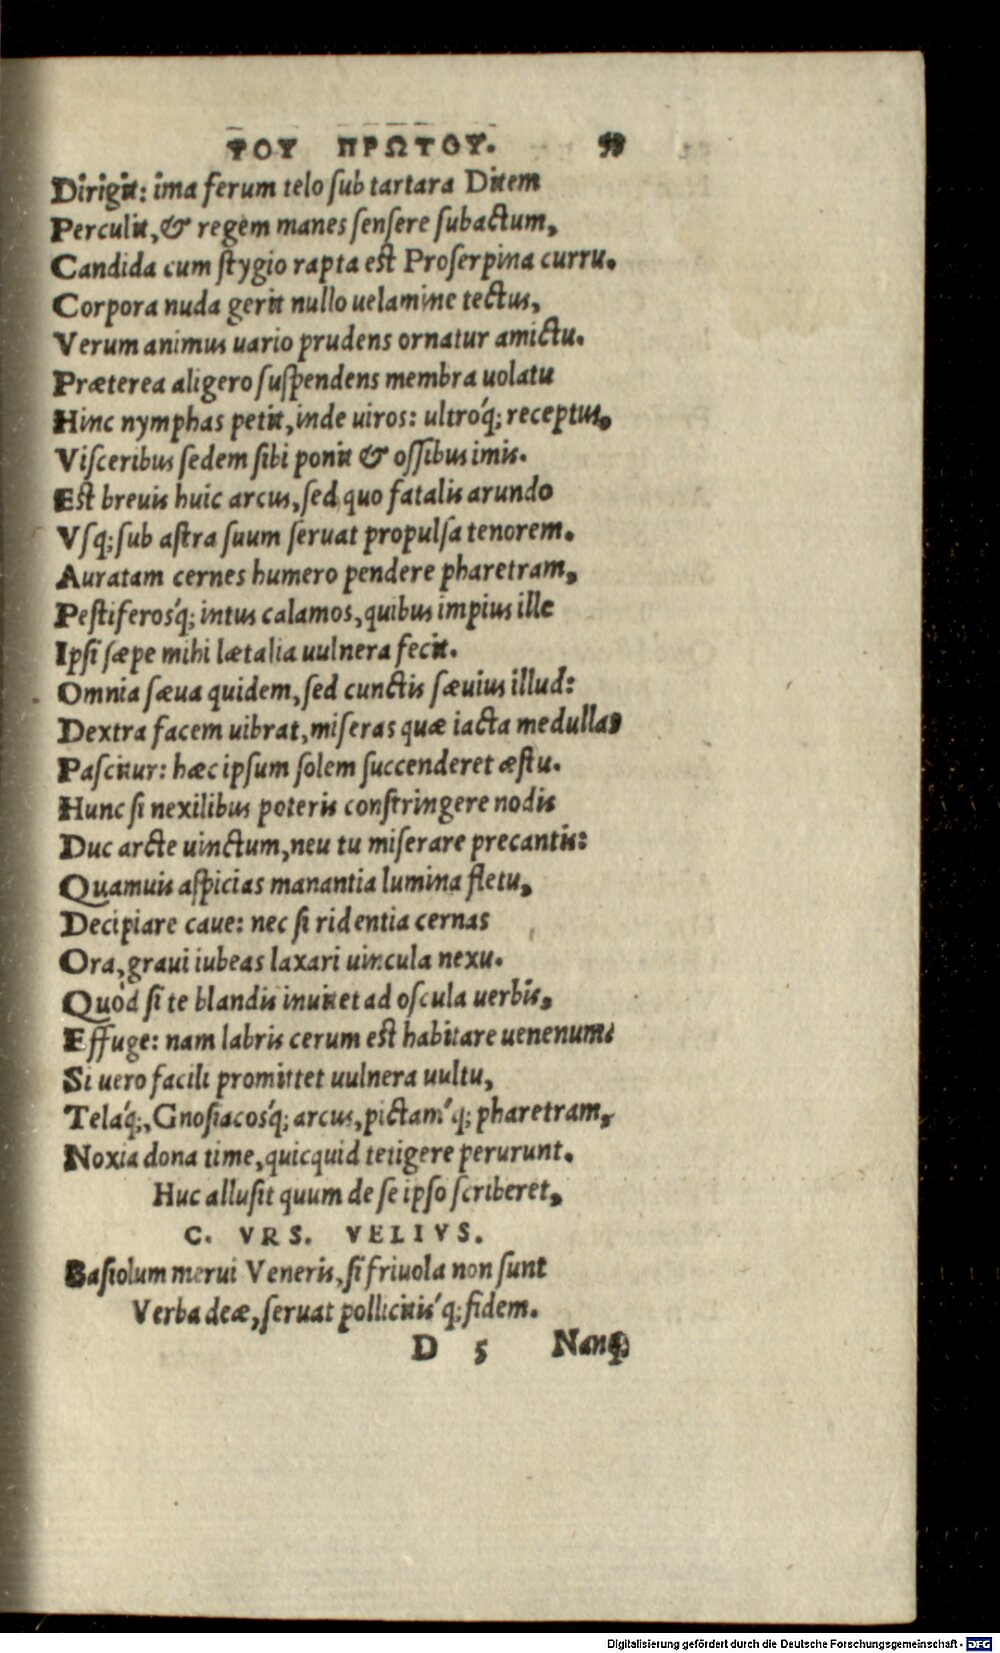 ΤΟΥ ΠΡΩΤΟΥ.
Dirigit: ima ferum telo ſub tartara Ditem
Perculit, & regem manes ſenſere ſubactum,
Candida cum ſtygio rapta eſt Proſerpina curru.
Corpora nuda gerit nullo uelamine tectus,
Verum animus uario prudens ornatur amictu.
Præterea aligero ſuſpendens membra uolatu
Hinc nymphas petit, inde uiros: ultróq; receptus,
Viſceribus ſedem ſibi ponit & oſſibus imis.
Eſt breuis huic arcus, ſed quo fatalis arundo
Vſq; ſub aſtra ſuum ſeruat propulſa tenorem.
Auratam cernes humero pendere pharetram,
Peſtiferosq́; intus calamos, quibus impius ille
Ipſi ſæpe mihi lætalia uulnera fecit.
Omnia ſæua quidem, ſed cunctis ſæuius illud:
Dextra facem uibrat, miſeras quæ iacta medullas
Paſcitur: hæc ipſum ſolem ſuccenderet æſtu.
Hunc ſi nexilibus poteris conſtringere nodis
Duc arcte uinctum, neu tu miſerare precantis:
Quamuis aſpicias manantia lumina fletu,
Decipiare caue: nec ſi ridentia cernas
Ora, graui iubeas laxari uincula nexu.
Quòd ſi te blandis inuitet ad oſcula uerbis,
Effuge: nam labris cerum eſt habitare uenenum:
Si uero facili promittet uulnera uultu,
Teláq;, Gnoſiacosq́; arcus, pictamq́; pharetram,
Noxia dona time, quicquid tetigere perurunt.
Huc alluſit quum de ſe ipſo ſcriberet,
C. VRS. VELIVS.
Baſiolum merui Veneris, ſi friuola non ſunt
Verba deæ, ſeruat pollicitisq́; fidem.
D 5 Nanq;
Digitalisierung gefördert durch die Deutsche Forschungsgemeinschaft - DFG